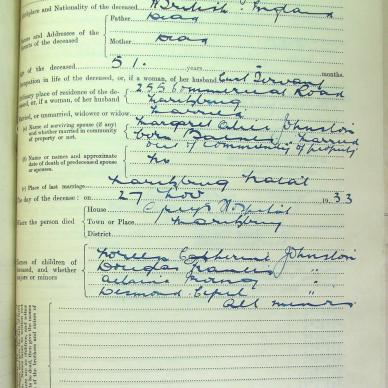 Birthplace and Nationality of the deceased British: England
Names and Addresses of the
parents of the deceased
Father Dead
Mother Dead
Age of the deceased 51. years months.
Occupation in life of the deceased, or, if a woman, of her husband Civil Servant
Ordinary place of residence of the de-
ceased, or, if a woman, of her husband 255 Commercial Road
Maritzburg
Married, or unmarried, widower or widow Married
(a) Name of surviving spouse (if any)
and whether married in community
of property or not.
Margaret Johnston
born married
out of Community of property
(b) Name or names and approximate
date of death of predeceased spouse
or spouses.
no
(c) Place of last marriage. Maritzburg Natal
The day of the decease: on 27 Nov 1933
Where the person died
House Greys Hospital
Town or Place Maritzburg
District
Names of children of
deceased, and whether
majors or minors
Catherine Johnston
Douglas Francis "
"
Desmond Cecil "
all minors